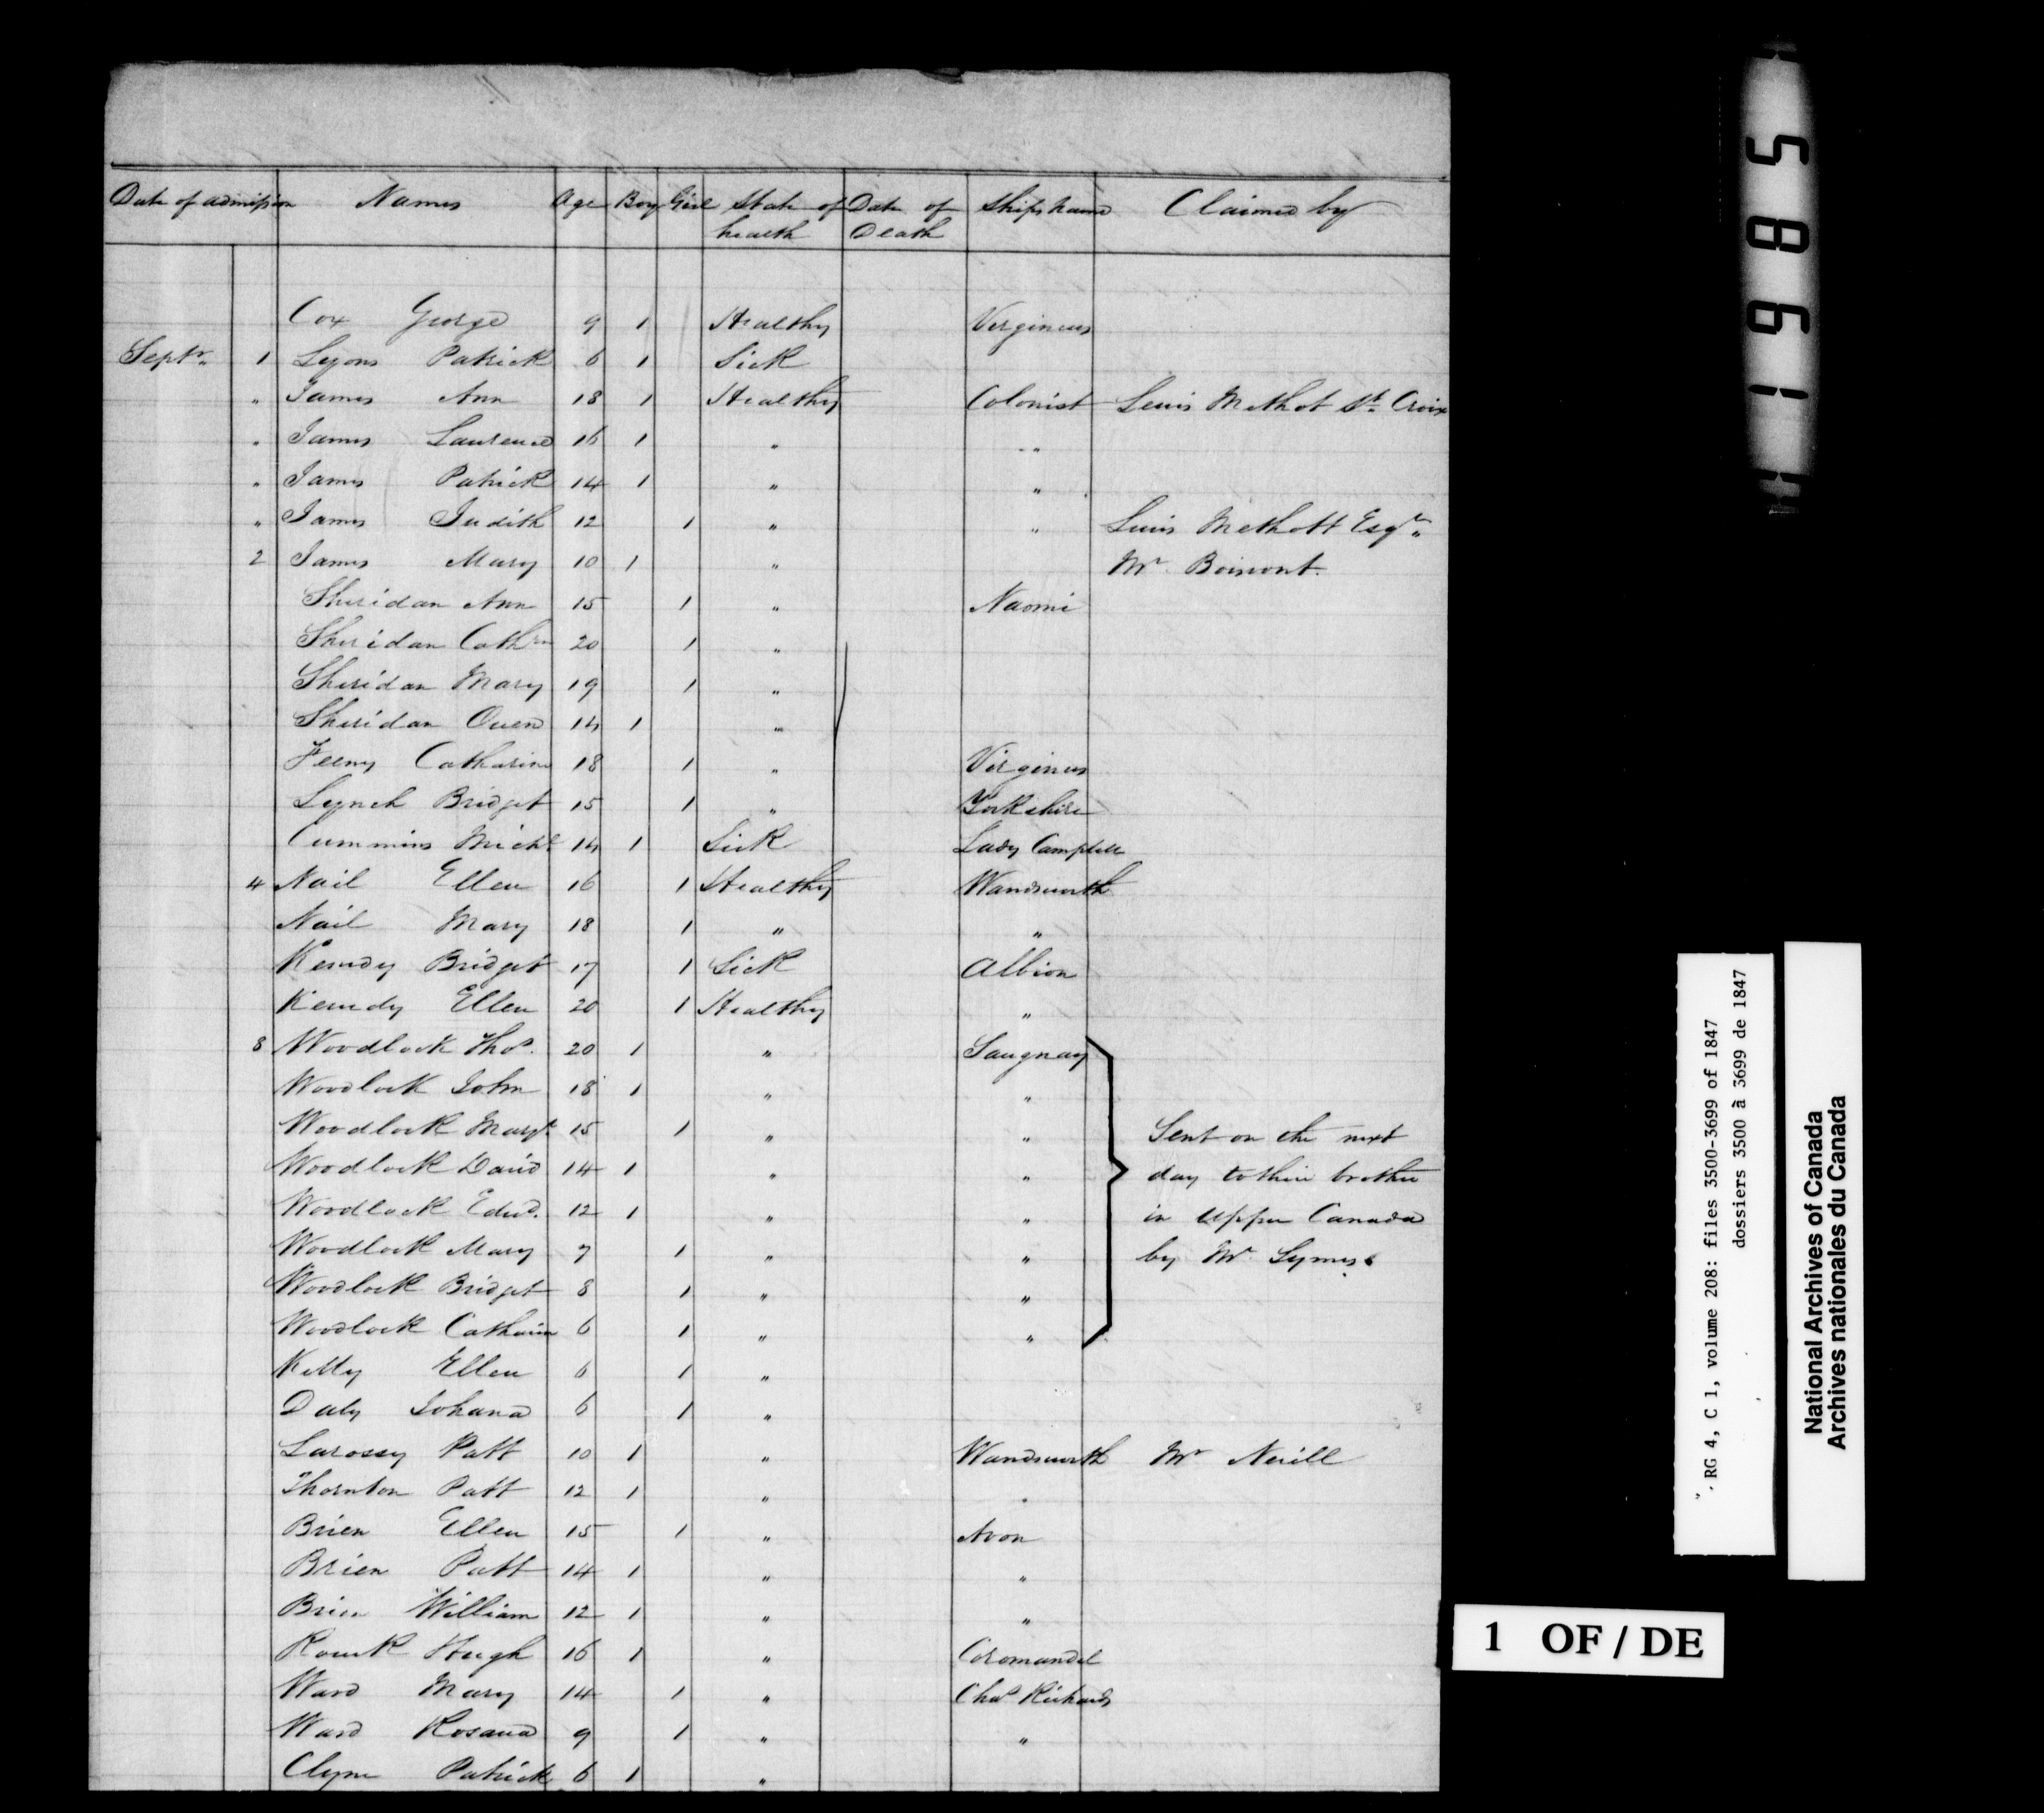 Date of admission Names Age Boy Girl State of health Date of Death Ships Name Claimed by
Cox George 9 1 Healthy Virginius
Septr. 1 Lyons Patrick 6 1 Sick
" James Ann 18 1 Healthy Colonist Lewis Methot St. Croix
" James Laurence 16 1 " "
" James Patrick 14 1 " "
" James Judith 12 1 " " Lewis Methott Esqr.
2 James Mary 10 1 " Mr.
Sheridan Ann 15 1 " Naomi
Sheridan Cathrn 20 1 "
Sheridan Mary 19 1 "
Sheridan Owen 14 1 "
Feeny Catharine 18 1 " Virginius
Lynch Bridget 15 1 " Yorkshire
Cummins Michl 14 1 Sick Lady Campbell
4 Nail Ellen 16 1 Healthy Wandsworth
Nail Mary 18 1 " "
Kennedy Bridget 17 1 Sick Albion
Kennedy Ellen 20 1 Healthy "
8 Woodlock Thos. 20 1 " Saugnay
Woodlock John 18 1 " "
Woodlock Margt. 15 1 " " Sent on the next
Woodlock David 14 1 " " day to their brother
Woodlock Edwd. 12 1 " " in Upper Canada
Woodlock Mary 7 1 " " by Mr. Symes
Woodlock Bridget 8 1 " "
Woodlock Catharin 6 1 " "
Kelly Ellen 6 1 "
Daly Johana 6 1 "
Larossy Patt 10 1 " Wandsworth Mr Neill
Thornton Patt 12 1 " "
Brien Ellen 15 1 " Avon
Brien Patt 14 1 " "
Brien William 12 1 " "
Rourk Hugh 16 1 " Coromandel
Ward Mary 14 1 " Chas Richards
Ward Rosana 9 1 " "
Clyne Patrick 6 1 "
1 9 8 5
RG 4, C 1, volume 208: files 3500-3699 of 1847
dossiers 3500 à 3699 de 1847
National Archives of Canada
Archives nationales du Canada
1 OF / DE